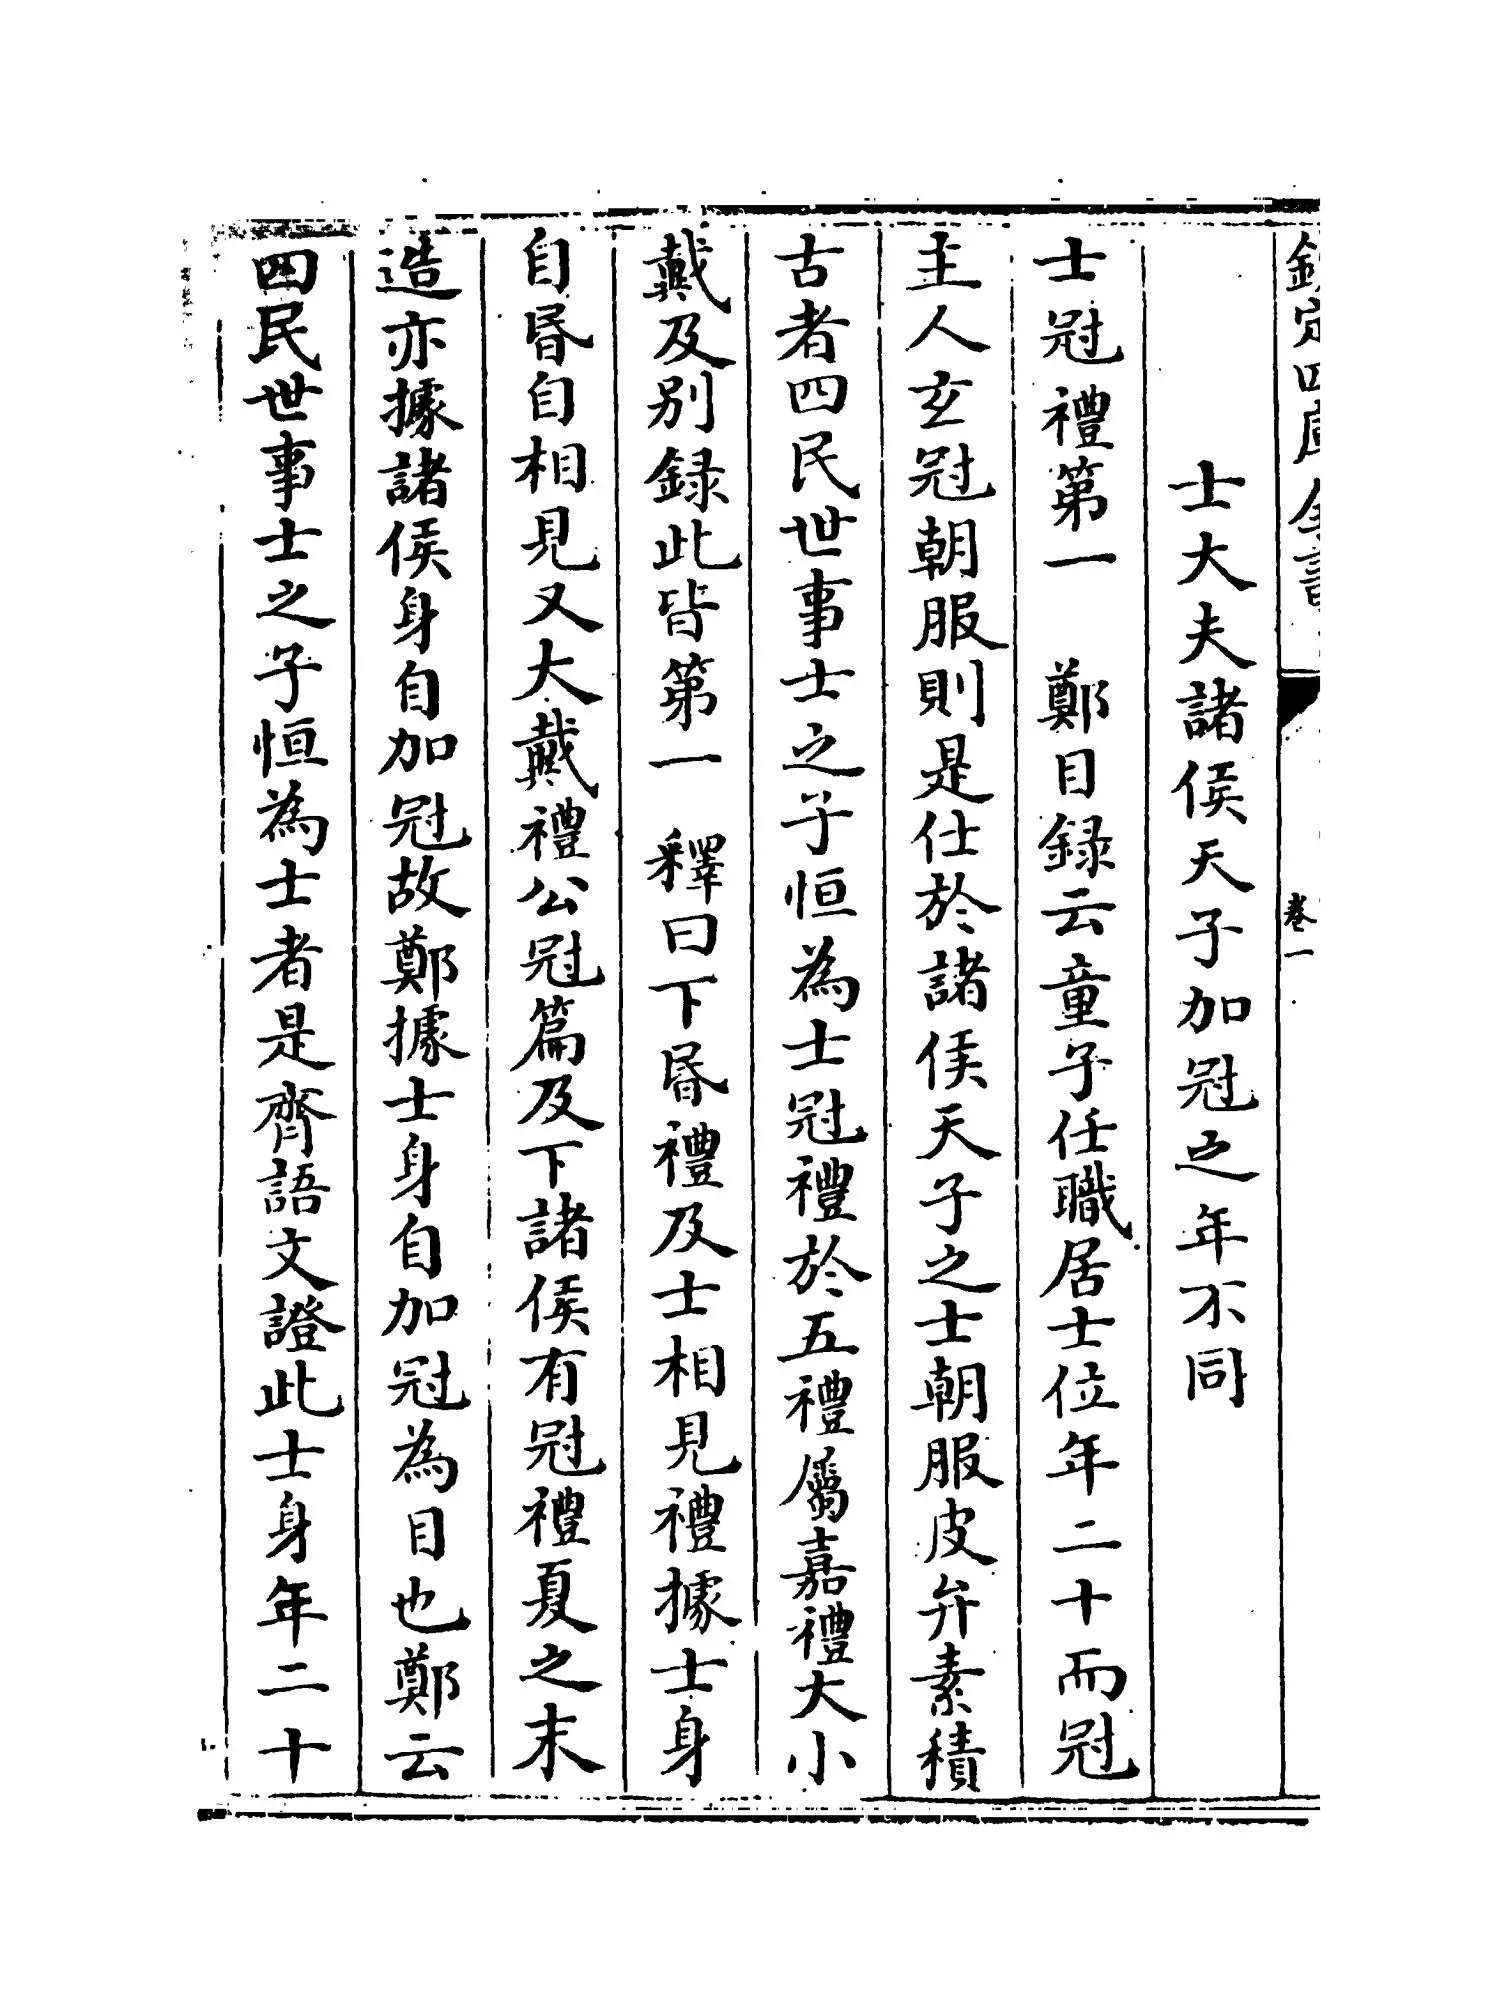 欽定四庫全書
卷一
士大夫諸侯天子加冠之年不同
士冠禮第一　鄭目録云童子任職居士位年二十而冠
主人玄冠朝服則是仕於諸侯天子之士朝服皮弁素積
古者四民世事士之子恒為士冠禮於五禮屬嘉禮大小
戴及别録此皆第一　釋曰下昏禮及士相見禮據士身
自昏自相見又大戴禮公冠篇及下諸侯有冠禮夏之末
造亦據諸侯身自加冠故鄭據士身自加冠為目也鄭云
四民世事士之子恒為士者是齊語文證此士身年二十